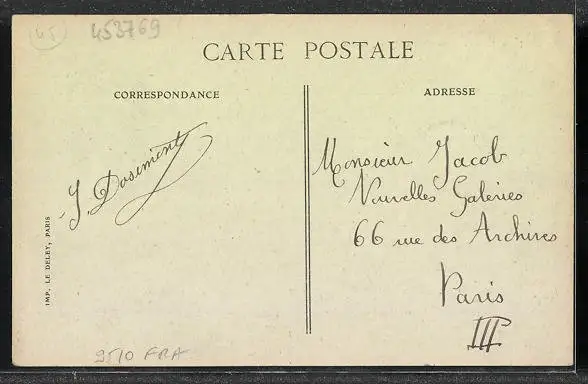 45 453769
CARTE POSTALE
CORRESPONDANCE
ADRESSE
J. Dosimont
Monsieur Jacob
Nouvelles Galeries
66 rue des Archives
Paris
III
IMP. LE DELEY, PARIS
2510 FRA